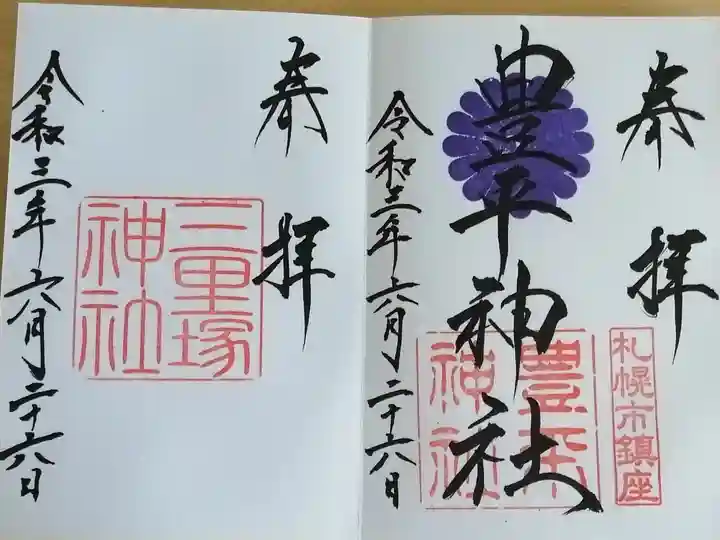 奉拝
豊平神社
豊平神社
札幌市鎮座
令和三年六月二十六日
奉拝
三里塚神社
令和三年六月二十六日